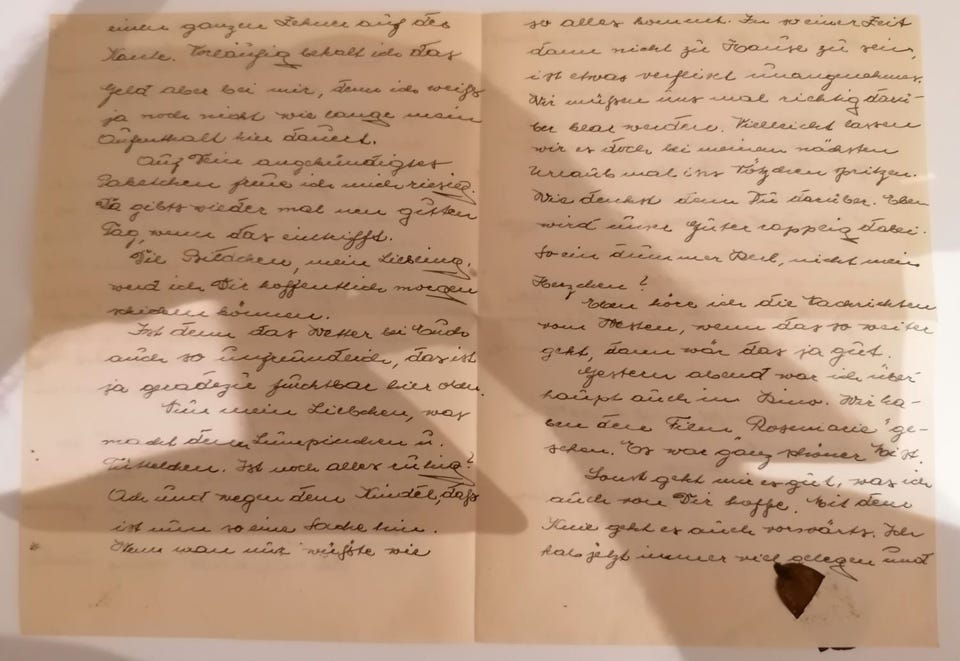 einen ganzen Zehner auf der
Kante. Vorläufig behalt ich das
Geld aber bei mir, denn ich weiß
ja noch nicht wie lange mein
Aufenthalt hier dauert.
Auf Dein angekündigtes
Paketchen freue ich mich riesig.
Da gibts wieder mal nen guten
Tag, wenn das eintrifft.
Die Bildchen, mein Liebling,
werd ich Dir hoffentlich morgen
schicken können.
Ist denn das Wetter bei Euch
auch so unfreundlich, das ist
ja geradezu furchtbar hier oben.
Nun mein Liebchen, was
macht denn u.
Ist noch alles ruhig?
Ach und wegen dem Kindel, daß
ist nun so eine Sache hin.
Wenn man nur wüßte wie
so alles kommt. In so einer Zeit
dann nicht zu Hause zu sein,
ist etwas verflixt unangenehmes.
Wir müßen uns mal richtig darü-
ber klar werden. Vielleicht lassen
wir es doch bei meinem nächsten
Urlaub mal ins spritzen.
Wie denkst denn Du darüber. Eben
wird unser Guter rappeig dabei.
So ein dummer Kerl, nicht mein
Herzchen?
Eben höre ich die Nachrichten
vom Westen, wenn das so weiter
geht, dann wär das ja gut.
Gestern abend war ich über-
haupt auch im Kino. Wir ha-
ben den Film "Rosemarie" ge-
sehen. Es war ganz schöner Mist.
Sonst geht mir es gut, was ich
auch von Dir hoffe. Mit dem
Knie geht es auch vorwärts. Ich
hab jetzt immer viel gelegen und